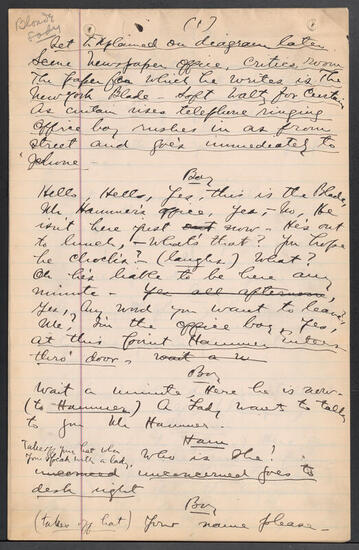 Blonde
Lady
(1)
Set Explained on diagram later
Scene Newspaper Office, Critics room
The paper for which he writes is the
New York Blade - Soft Waltz for Curtain
As curtain rises telephone ringing
Office boy rushes in as from
street and goes immediately to
'phone -
Boy
Hello, Hello, Yes, this is the Blade,
Mr. Hammer's office, Yes, - No, he
isn't here just out now - He's out
to lunch, - What's that? You hope
he chokes? - (laughs) What?
Oh he's liable to be here any
minute - Yes all afternoon,
Yes, Any word you want to leave,
Me, I'm the office boy, Yes,
at this point Hammer enters
thro' door, wait a m
Boy
Wait a minute Here he is now -
(to Hammer) A Lady wants to talk
to you Mr Hammer.
Ham
Take off your hat when
you speak with a lady,
Who is She?
unconcerned goes to
desk right
Boy
(takes off hat) Your name please -